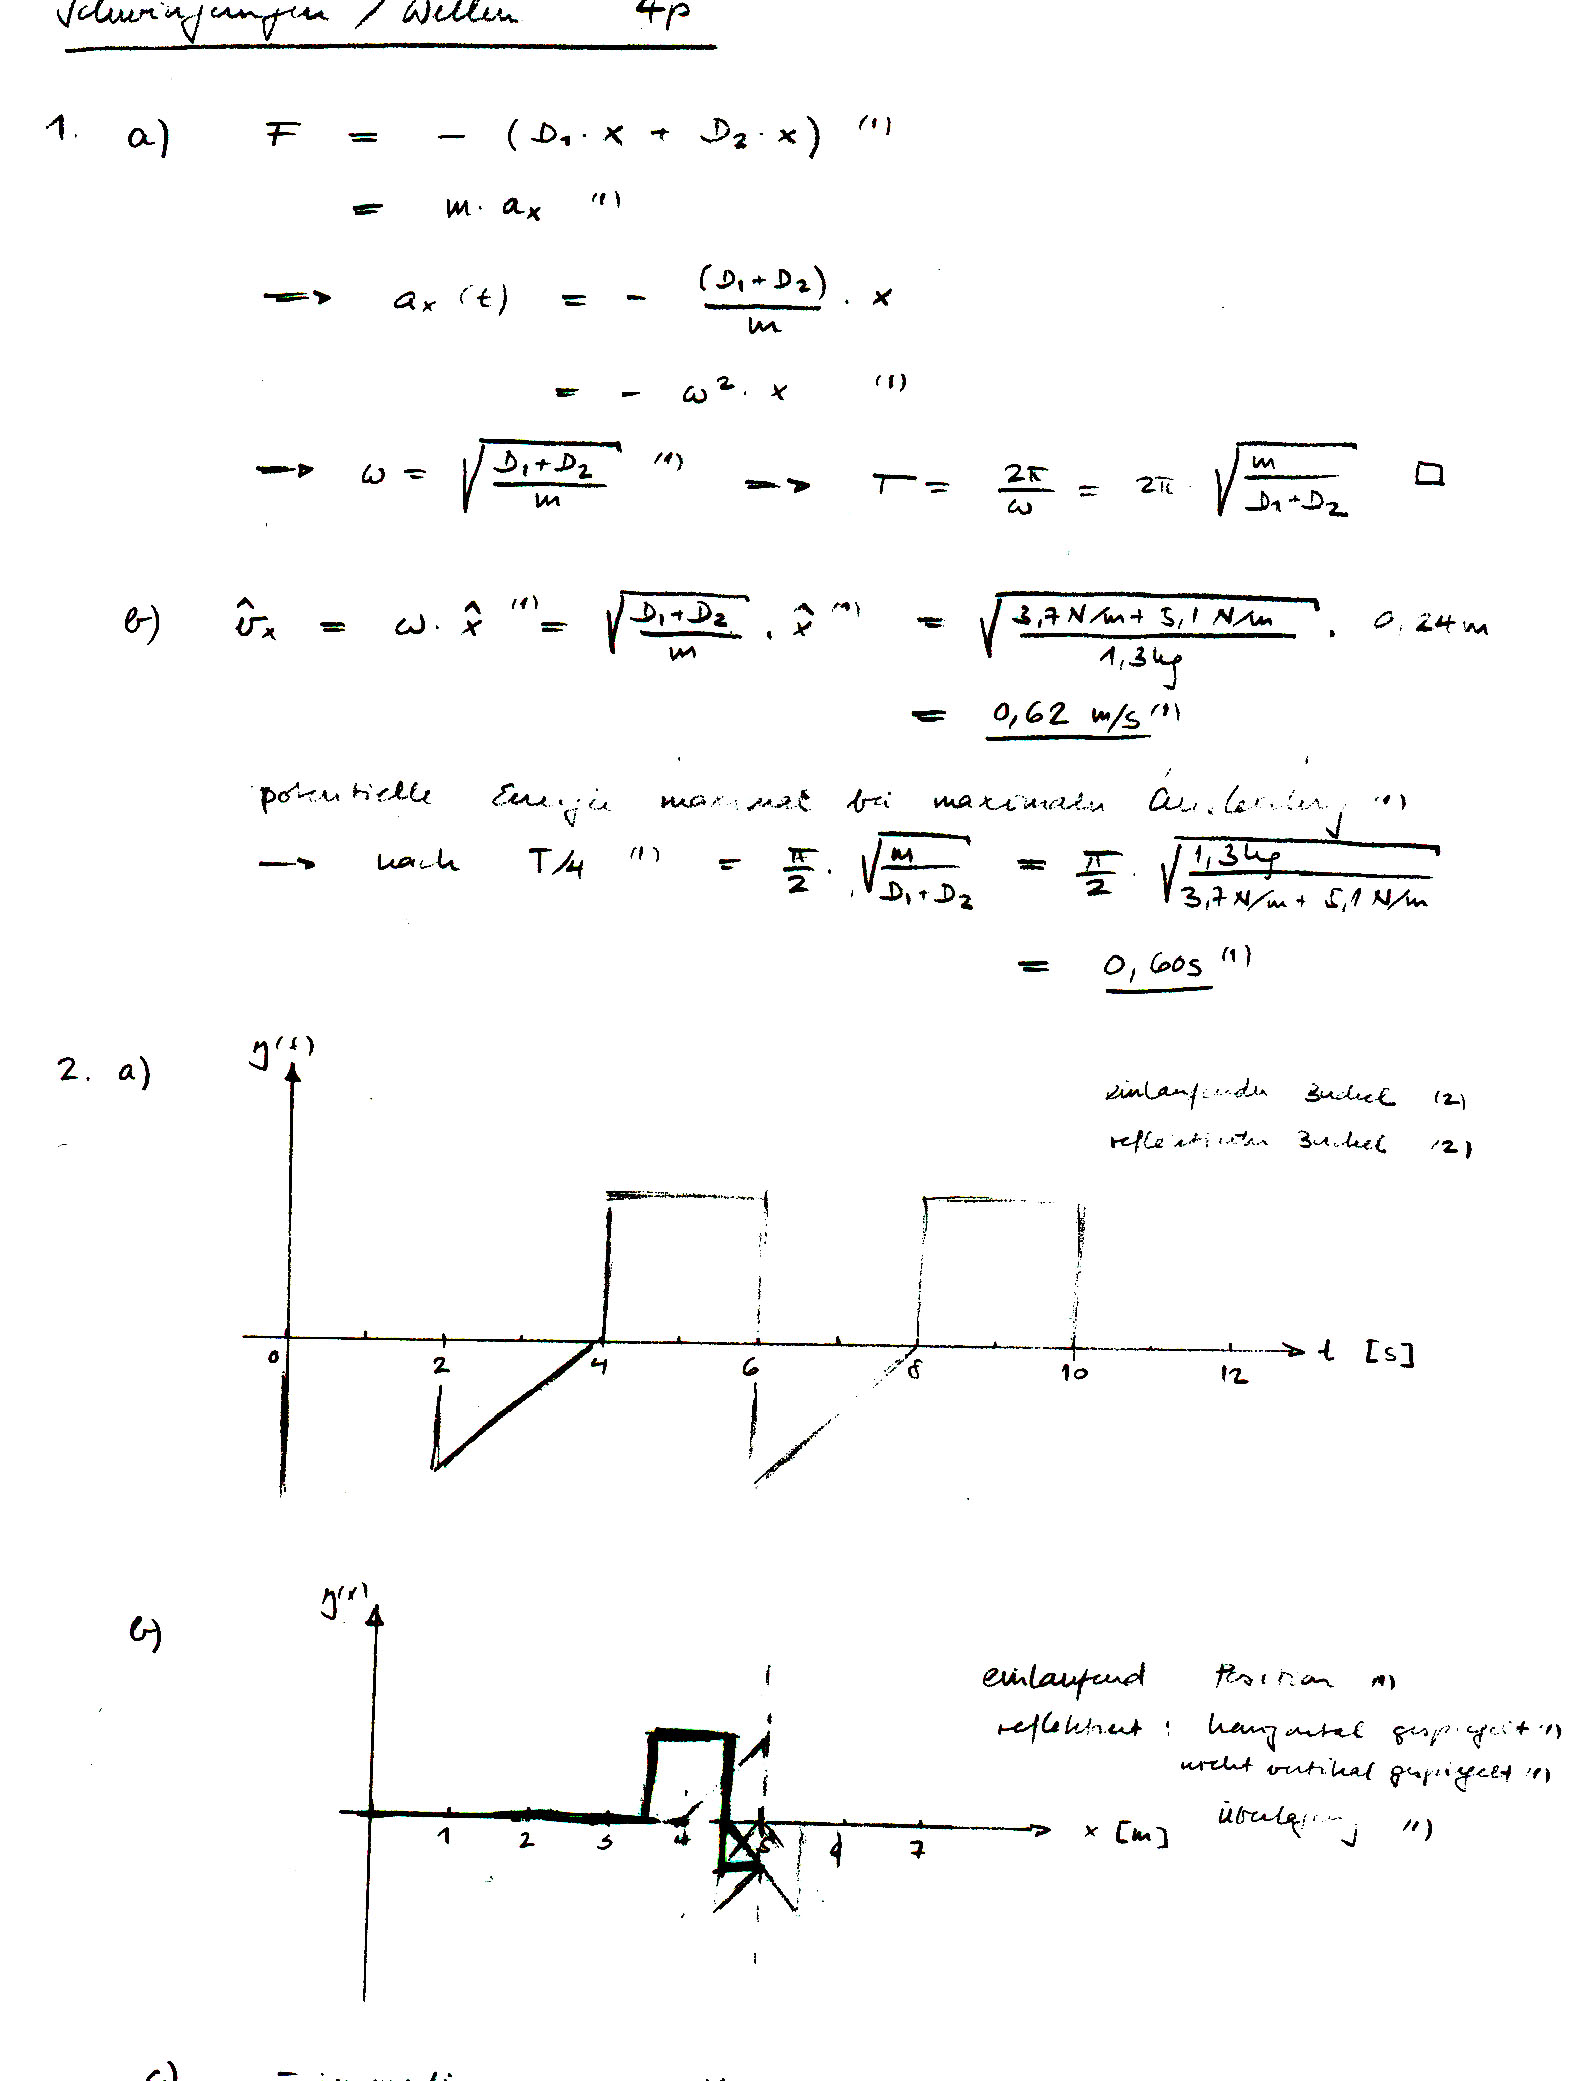 Schwingungen / Wellen 4p
1. a) F = - (D₁ · x + D₂ · x) (1)
= m · aₓ (1)
⟹ aₓ (t) = - (D₁ + D₂)/m · x
= - ω² · x (1)
→ ω = √((D₁ + D₂)/m) (1) → T = 2π/ω = 2π · √(m/(D₁ + D₂)) □
b) v̂ₓ = ω · x̂ (1) = √((D₁ + D₂)/m) · x̂ (1) = √((3,7 N/m + 5,1 N/m)/1,3 kg) · 0,24 m
= 0,62 m/s (1)
potentielle Energie maximal bei maximaler Auslenkung (1)
→ nach T/4 (1) = π/2 · √(m/(D₁ + D₂)) = π/2 · √(1,3 kg/(3,7 N/m + 5,1 N/m))
= 0,60 s (1)
2. a) y(t)
einlaufender Buckel (2)
reflektierter Buckel (2)
0 2 4 6 8 10 12 t [s]
b) y(x)
einlaufend Position (1)
reflektiert : horizontal gespiegelt (1)
nicht vertikal gespiegelt (1)
Überlagerung (1)
1 2 3 4 5 6 7 x [m]
c)